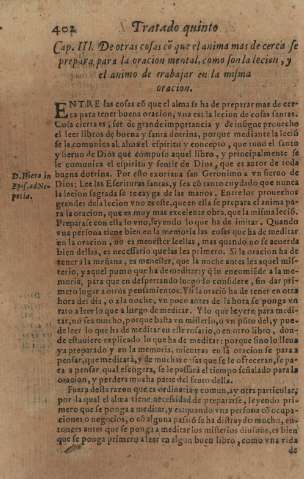 402 Tratado quinto
Cap. III. De otras cosas cõ que el anima mas de cerca se
prepara, para la oracion mental, como son la lecion, y
el animo de trabajar en la misma
oracion.
ENTRE las cosas cõ que el alma se ha de preparar mas de cer-
ca para tener buena oracion, vna es la lecion de cosas santas.
Cosa cierta es, ser de grande importancia y de insigne prouecho
el leer libros de buena y santa dotrina, porque mediante la leciõ
se le comunica al alma el espiritu y concepto, que tuuo el santo
y sieruo de Dios que compuso aquel libro, y principalmente se
le comunica el espiritu y sentir de Dios, que es autor de toda
D. Hiero in buena dotrina. Por esto exortaua san Geronimo a vn sieruo de
Dios: Lee las Escrituras santas, y sea cõ tanto cuydado que nunca
la lecion sagrada se te cayga de las manos. Entre los prouechos
grandes desta lecion vno es este, que en ella se prepara el anima pa-
ra la oracion, que es muy mas excelente obra, que la misma leciõ.
Preparase con ella lo vno, leyendo lo que ha de meditar. Quando
vna persona tiene bien en la memoria las cosas que ha de meditar
en la oracion, no es menester leerlas, mas quando no se acuerda
bien dellas, es necessario que las lea primero. Si la oracion ha de
tener a la mañana, es menester, que la noche antes lea aquel mis-
terio, y aquel punto que ha de meditar: y q̃ lo encomiẽde a la me-
moria, para que en despertando luego lo considere, sin dar pri-
mero lugar a otros pensamientos. Y si la oraciõ ha de tener en otra
hora del dia, o a la noche, vn poco antes de la hora se ponga vn
rato a leer lo que a luego de meditar. Y lo que leyere para medi-
tar, no sea mucho, porque basta vn misterio, o vn pũto del, y pue-
de leer lo que ha de meditar en este rosario, o en otro libro, don-
de estuuiere explicado lo que ha de meditar: porque sino lo lleua
ya preparado y en la memoria, mientras en la oracion se para a
pensar, que meditará, y de muchas cosas que se le ofreceran, se pa-
ra a pensar qual escogera, se le passará el tiempo señalado para la
oracion, y perdera mucha parte del fruto della.
Fuera desta razon que es ordinaria y comun, ay otra particular,
por la qual el alma tiene necessidad de prepararse, leyendo pri-
mero que se ponga a meditar, y es quando vna persona cõ ocupa-
ciones o negocios, o cõ alguna passiõ se ha distraydo mucho, en-
tonces antes que se ponga a meditar los misterios diuinos, es bien
que se ponga primero a leer en algun buen libro, como vna vida
de